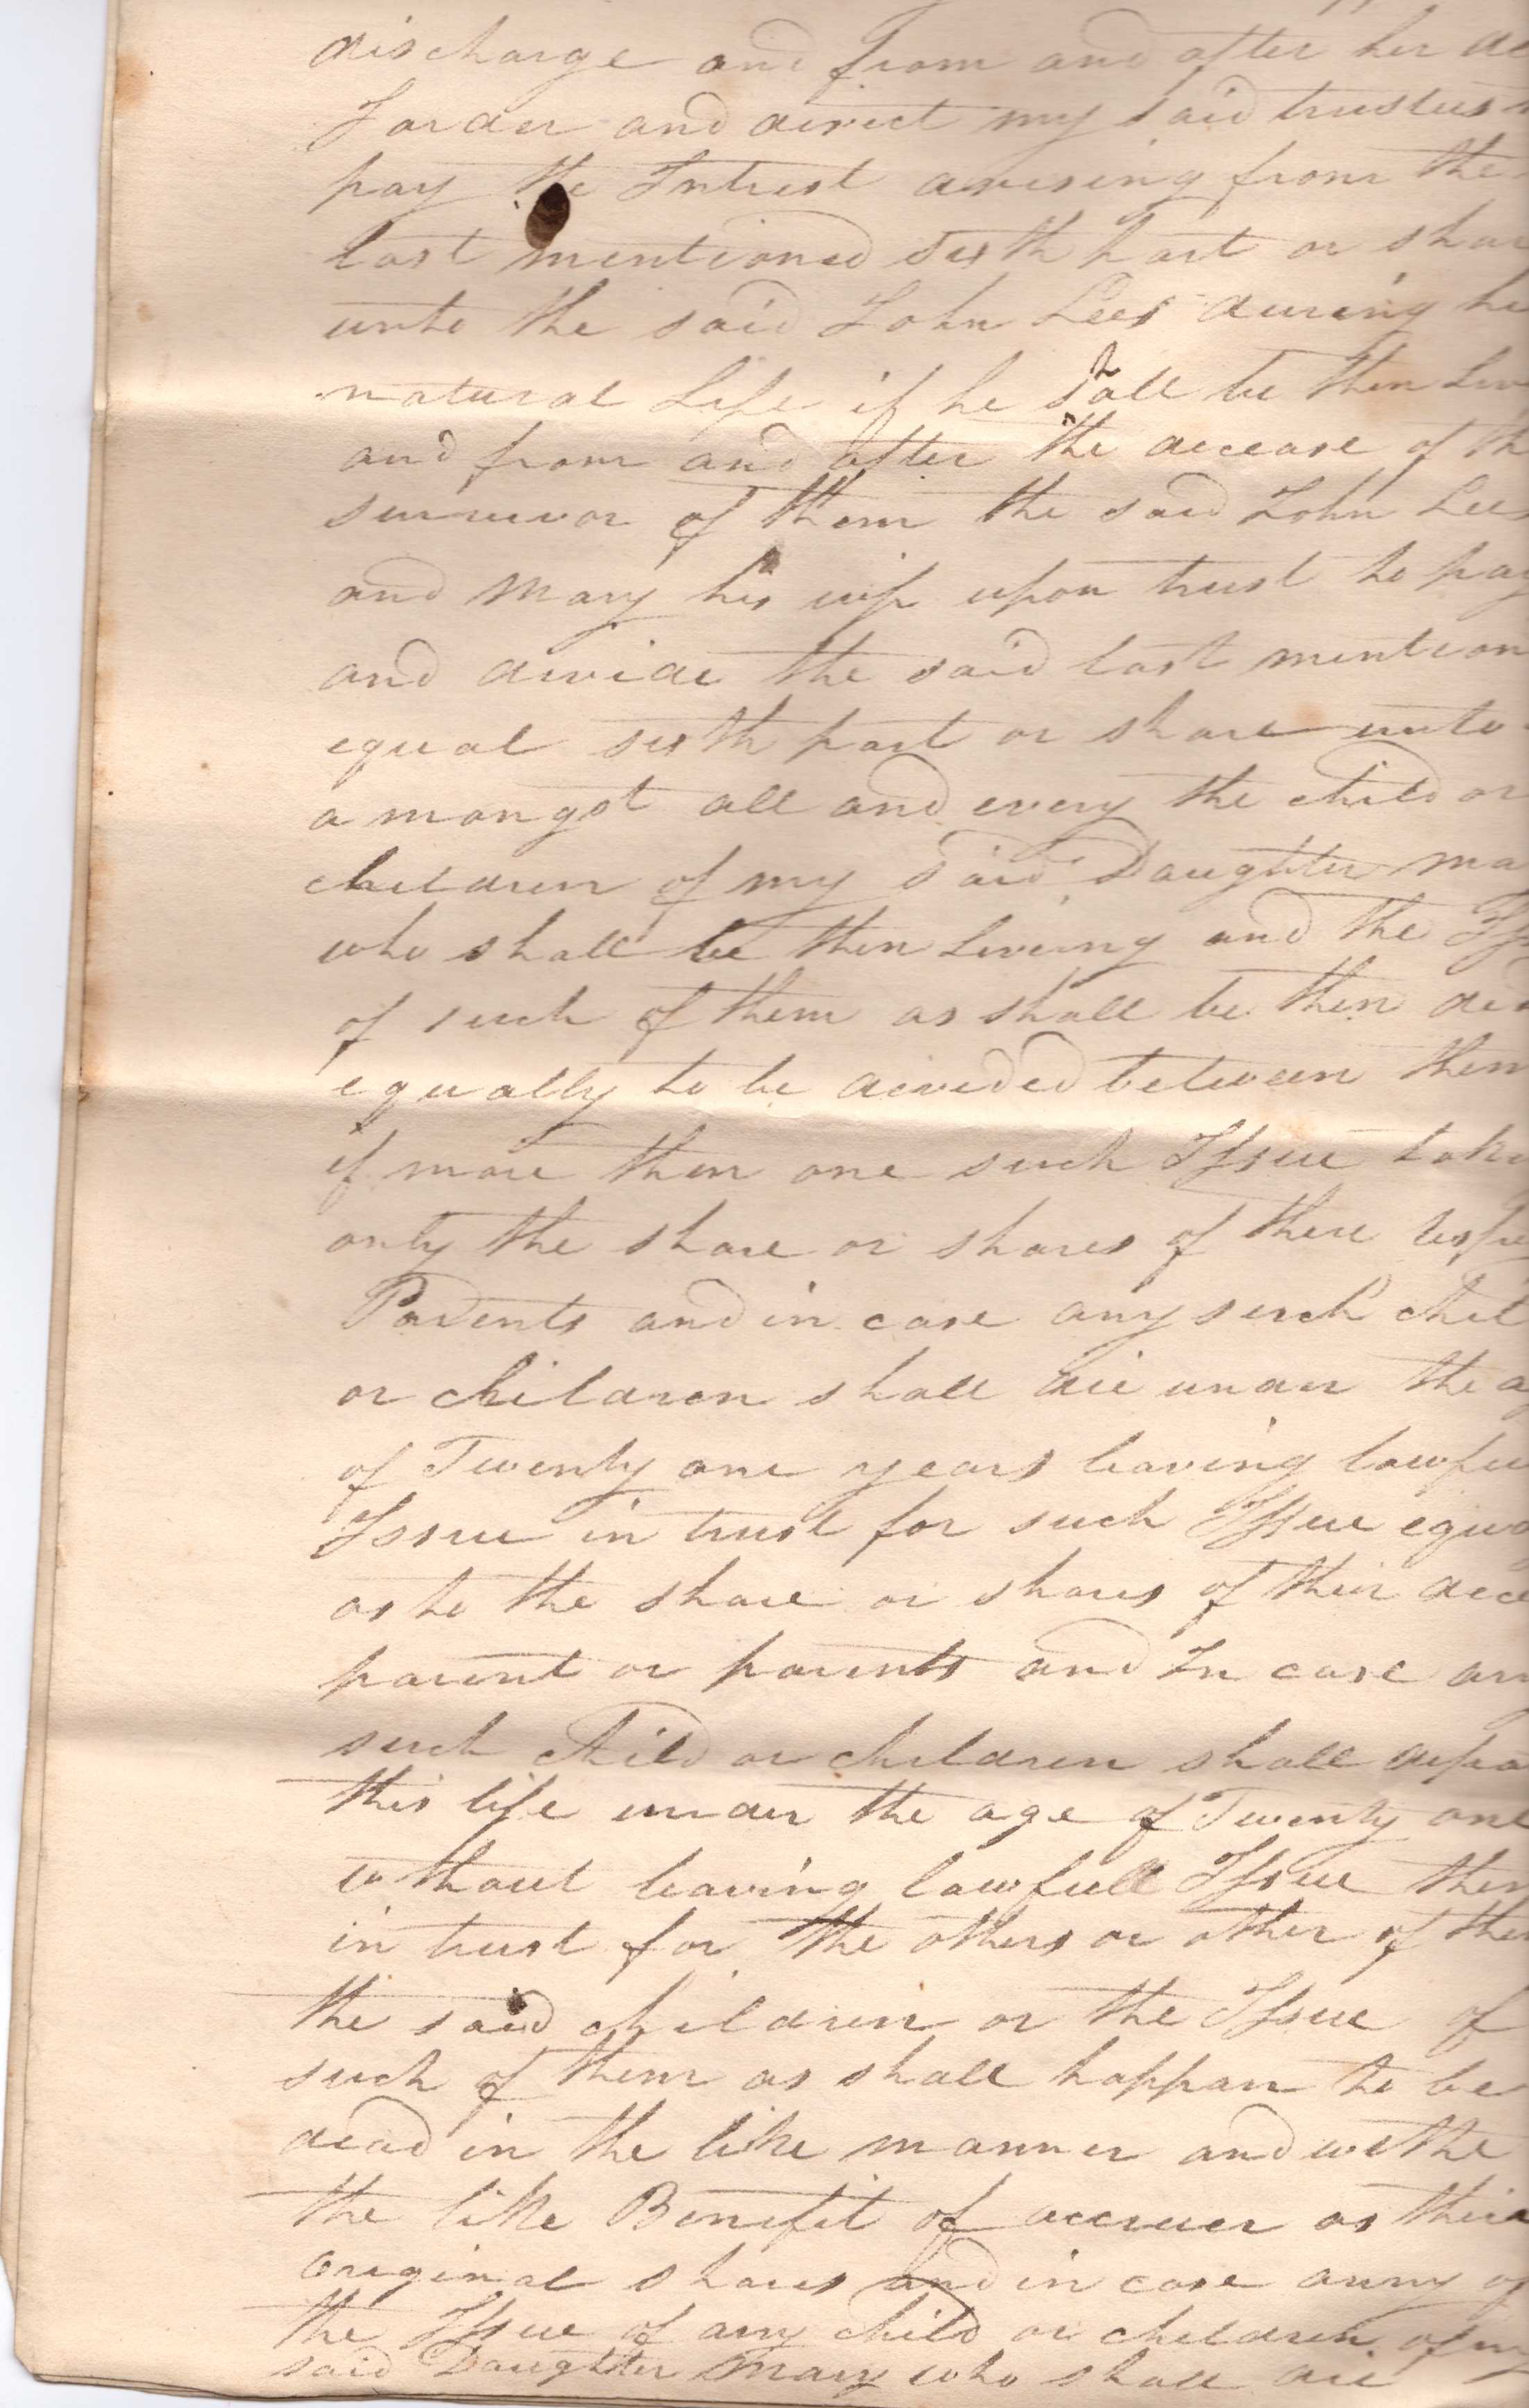 discharge and from and after her de
I order and direct my said trustees
pay the Intrest aresing from the
last mentioned sixth part or shar
unto the said John Lees during hi
natural Life if he shall be then liv
and from and after the decease of th
surruvor of them the said John Lees
and Mary his wife upon trust to pay
and devide the said last mention
equal sixth part or share unto
amongst all and every the child or
children of my said Daughter Ma
who shall be then Liveing and the Iss
of such of them as shall be then de
equally to be deveded between them
if more then one such Issue take
only the share or shares of there resp
Parents and in case any such chil
or children shall die under the a
of Twenty one years leaving lawfu
Issue in trust for such Issue equa
as to the share or shares of their dece
parent or parents and In case an
such child or children shall depa
this life under the age of Twenty one
without leaving lawfull Issue then
in trust for the others or other of the
the said children or the Issue of
such of them as shall happan to be
dead in the like manner and withe
the like Benefit of accruer as their
original shares and in case anny of
the Issue of any child or children of my
said Daughter Mary who shall die